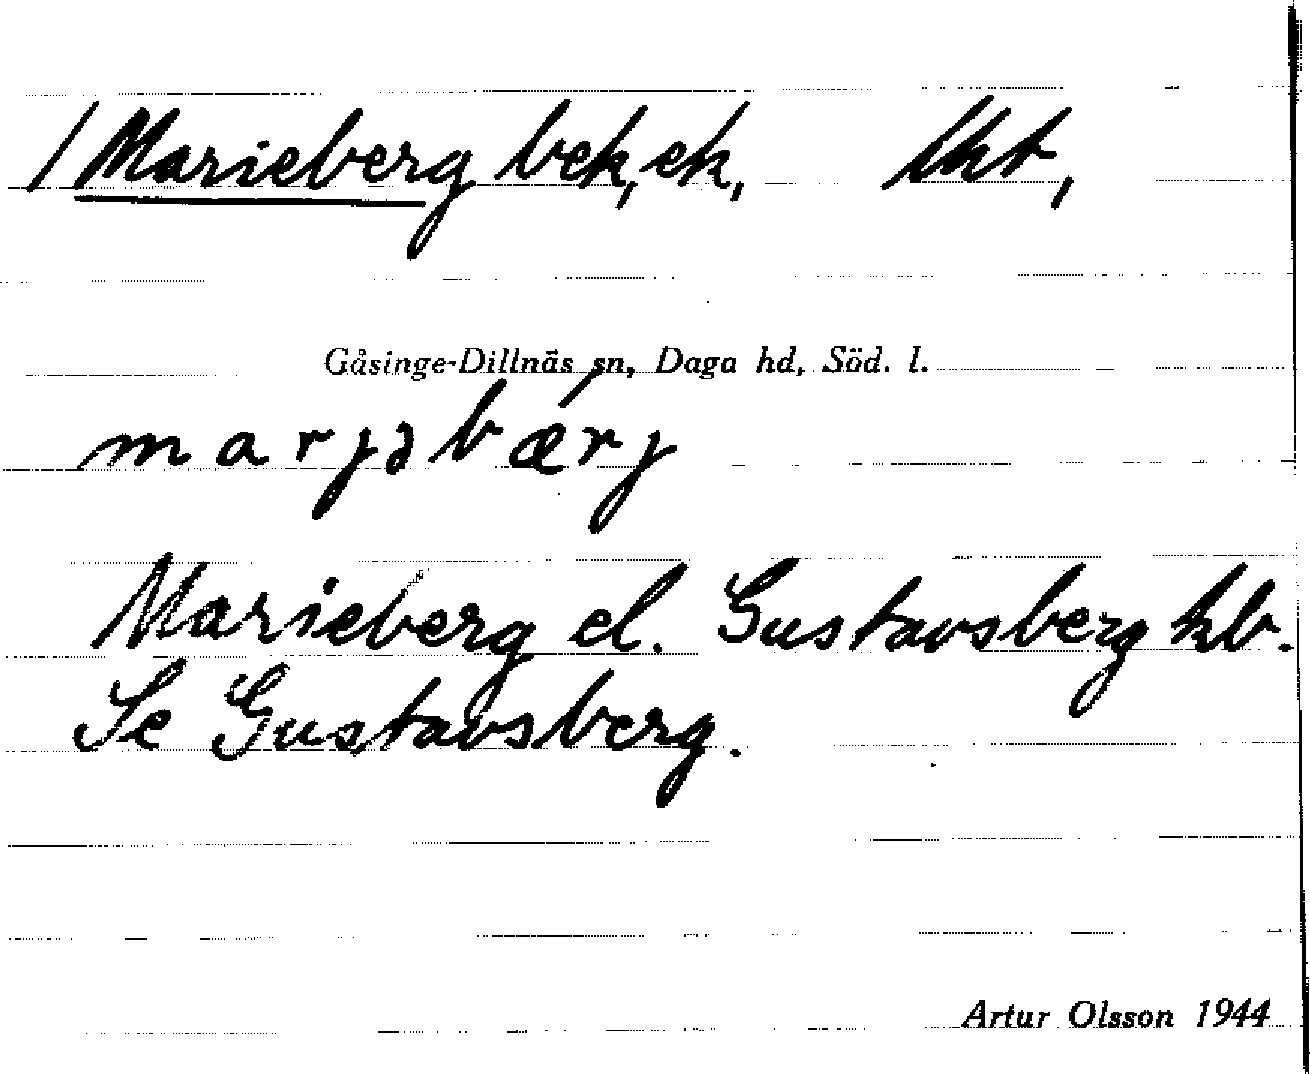 / Marieberg bek, ek, lht,
Gåsinge-Dillnäs sn, Daga hd, Söd. l.
marjəbǽrj
Marieberg el. Gustavsberg hb.
Se Gustavsberg.
Artur Olsson 1944